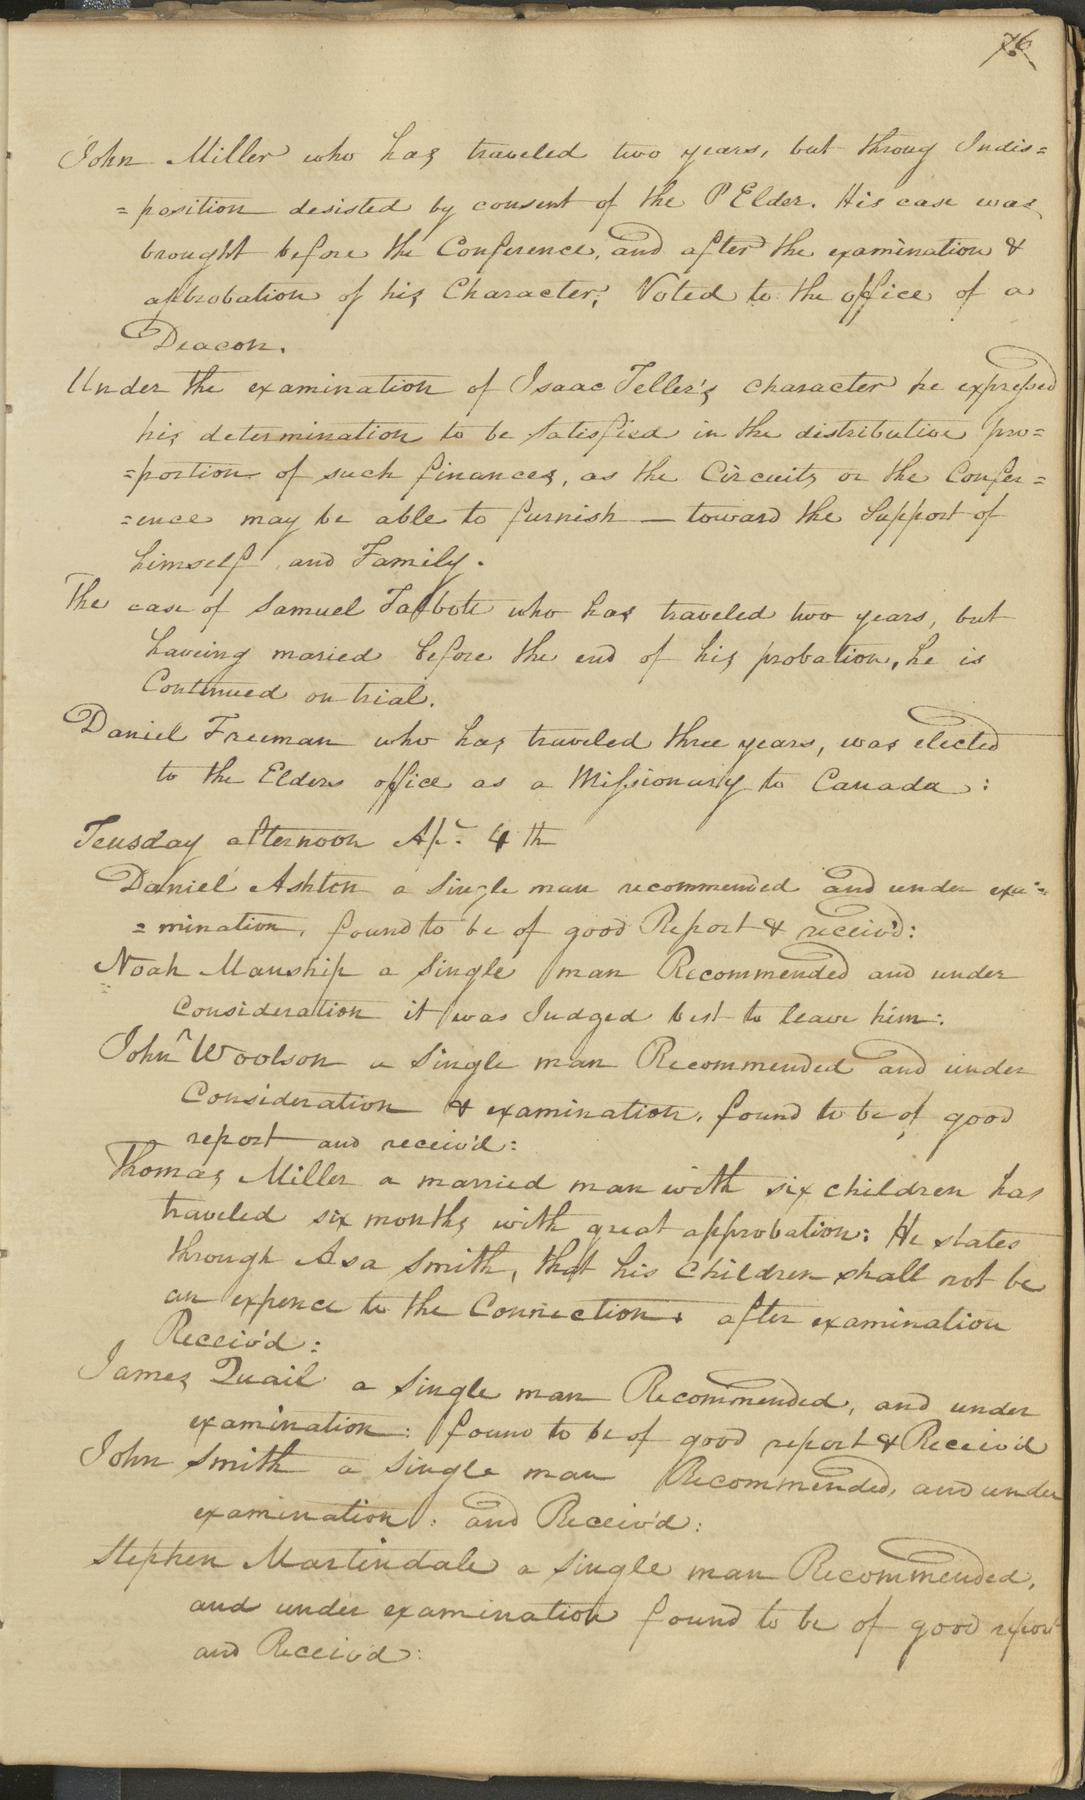 76
John Miller who has traveled two years, but throug Indis=
=position desisted by consent of the P Elder. His case was
brought before the Conference, and after the examination &
approbation of his Character, Voted to the office of a
Deacon.
Under the examination of Isaac Teller's character he expressed
his determination to be Satisfied in the distributive pro=
=portion of such finances, as the Circuits or the Confer=
=ence may be able to furnish — toward the Support of
himself and Family.
The case of Samuel Talbote who has traveled two years, but
haveing maried before the end of his probation, he is
Continued on trial.
Daniel Freeman who has traveled three years, was elected
to the Elders office as a Missionary to Canada:
Teusday afternoon Apr. 4th
Daniel Ashton a Single man recommended and under exa=
=mination, found to be of good Report & receiv'd:
Noah Manship a Single man Recommended and under
Consideration it was Judged best to leave him:
John Woolson a Single man Recommended and under
Consideration & examination, found to be of good
report and receiv'd:
Thomas Miller a married man with six children has
traveled six months with great approbation: He states
through Asa Smith, that his Children shall not be
an expence to the Connection. after examination
Receiv'd:
James Quail a Single man Recommended, and under
examination: found to be of good report & Receiv'd
John Smith a Single man Recommended, and under
examination: and Receiv'd:
Stephen Martindale a Single man Recommended,
and under examination found to be of good report
and Receiv'd: